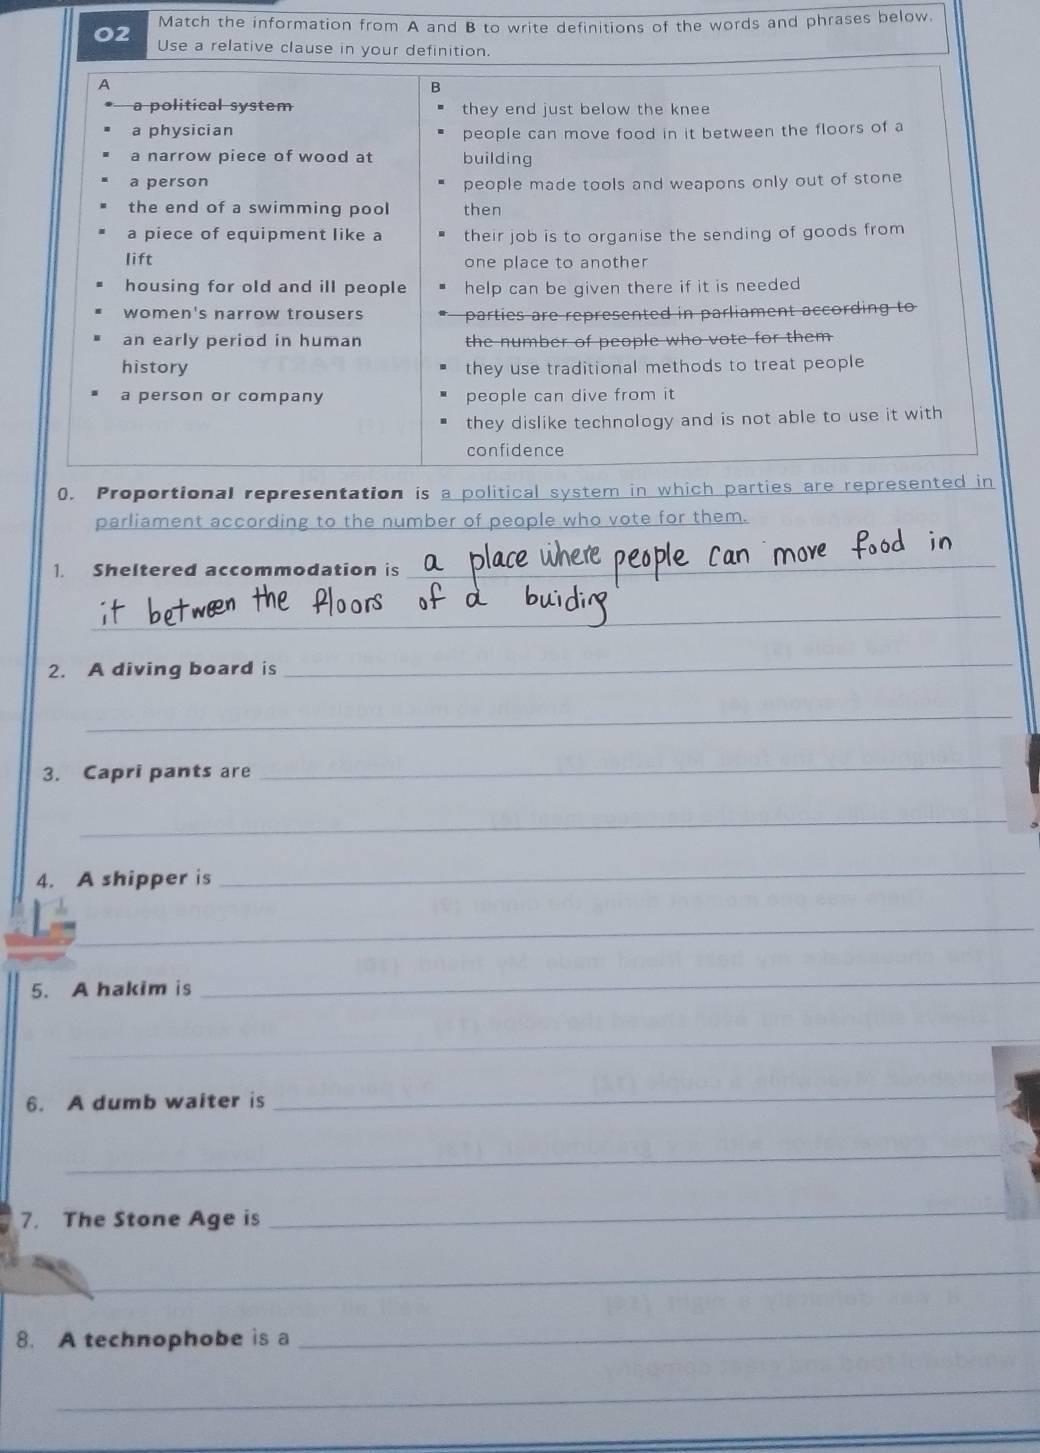 02
Match the information from A and B to write definitions of the words and phrases below.
Use a relative clause in your definition.
A
a political system
a physician
a narrow piece of wood at
a person
the end of a swimming pool
a piece of equipment like a
lift
housing for old and ill people
women's narrow trousers
an early period in human
history
a person or company
B
they end just below the knee
people can move food in it between the floors of a
building
people made tools and weapons only out of stone
then
their job is to organise the sending of goods from
one place to another
help can be given there if it is needed
parties are represented in parliament according to
the number of people who vote for them
they use traditional methods to treat people
people can dive from it
they dislike technology and is not able to use it with
confidence
0. Proportional representation is a political system in which parties are represented in
parliament according to the number of people who vote for them.
1. Sheltered accommodation is a place where people can move food in
it between the floors of a buiding
2. A diving board is
3. Capri pants are
4. A shipper is
5. A hakim is
6. A dumb waiter is
7. The Stone Age is
8. A technophobe is a